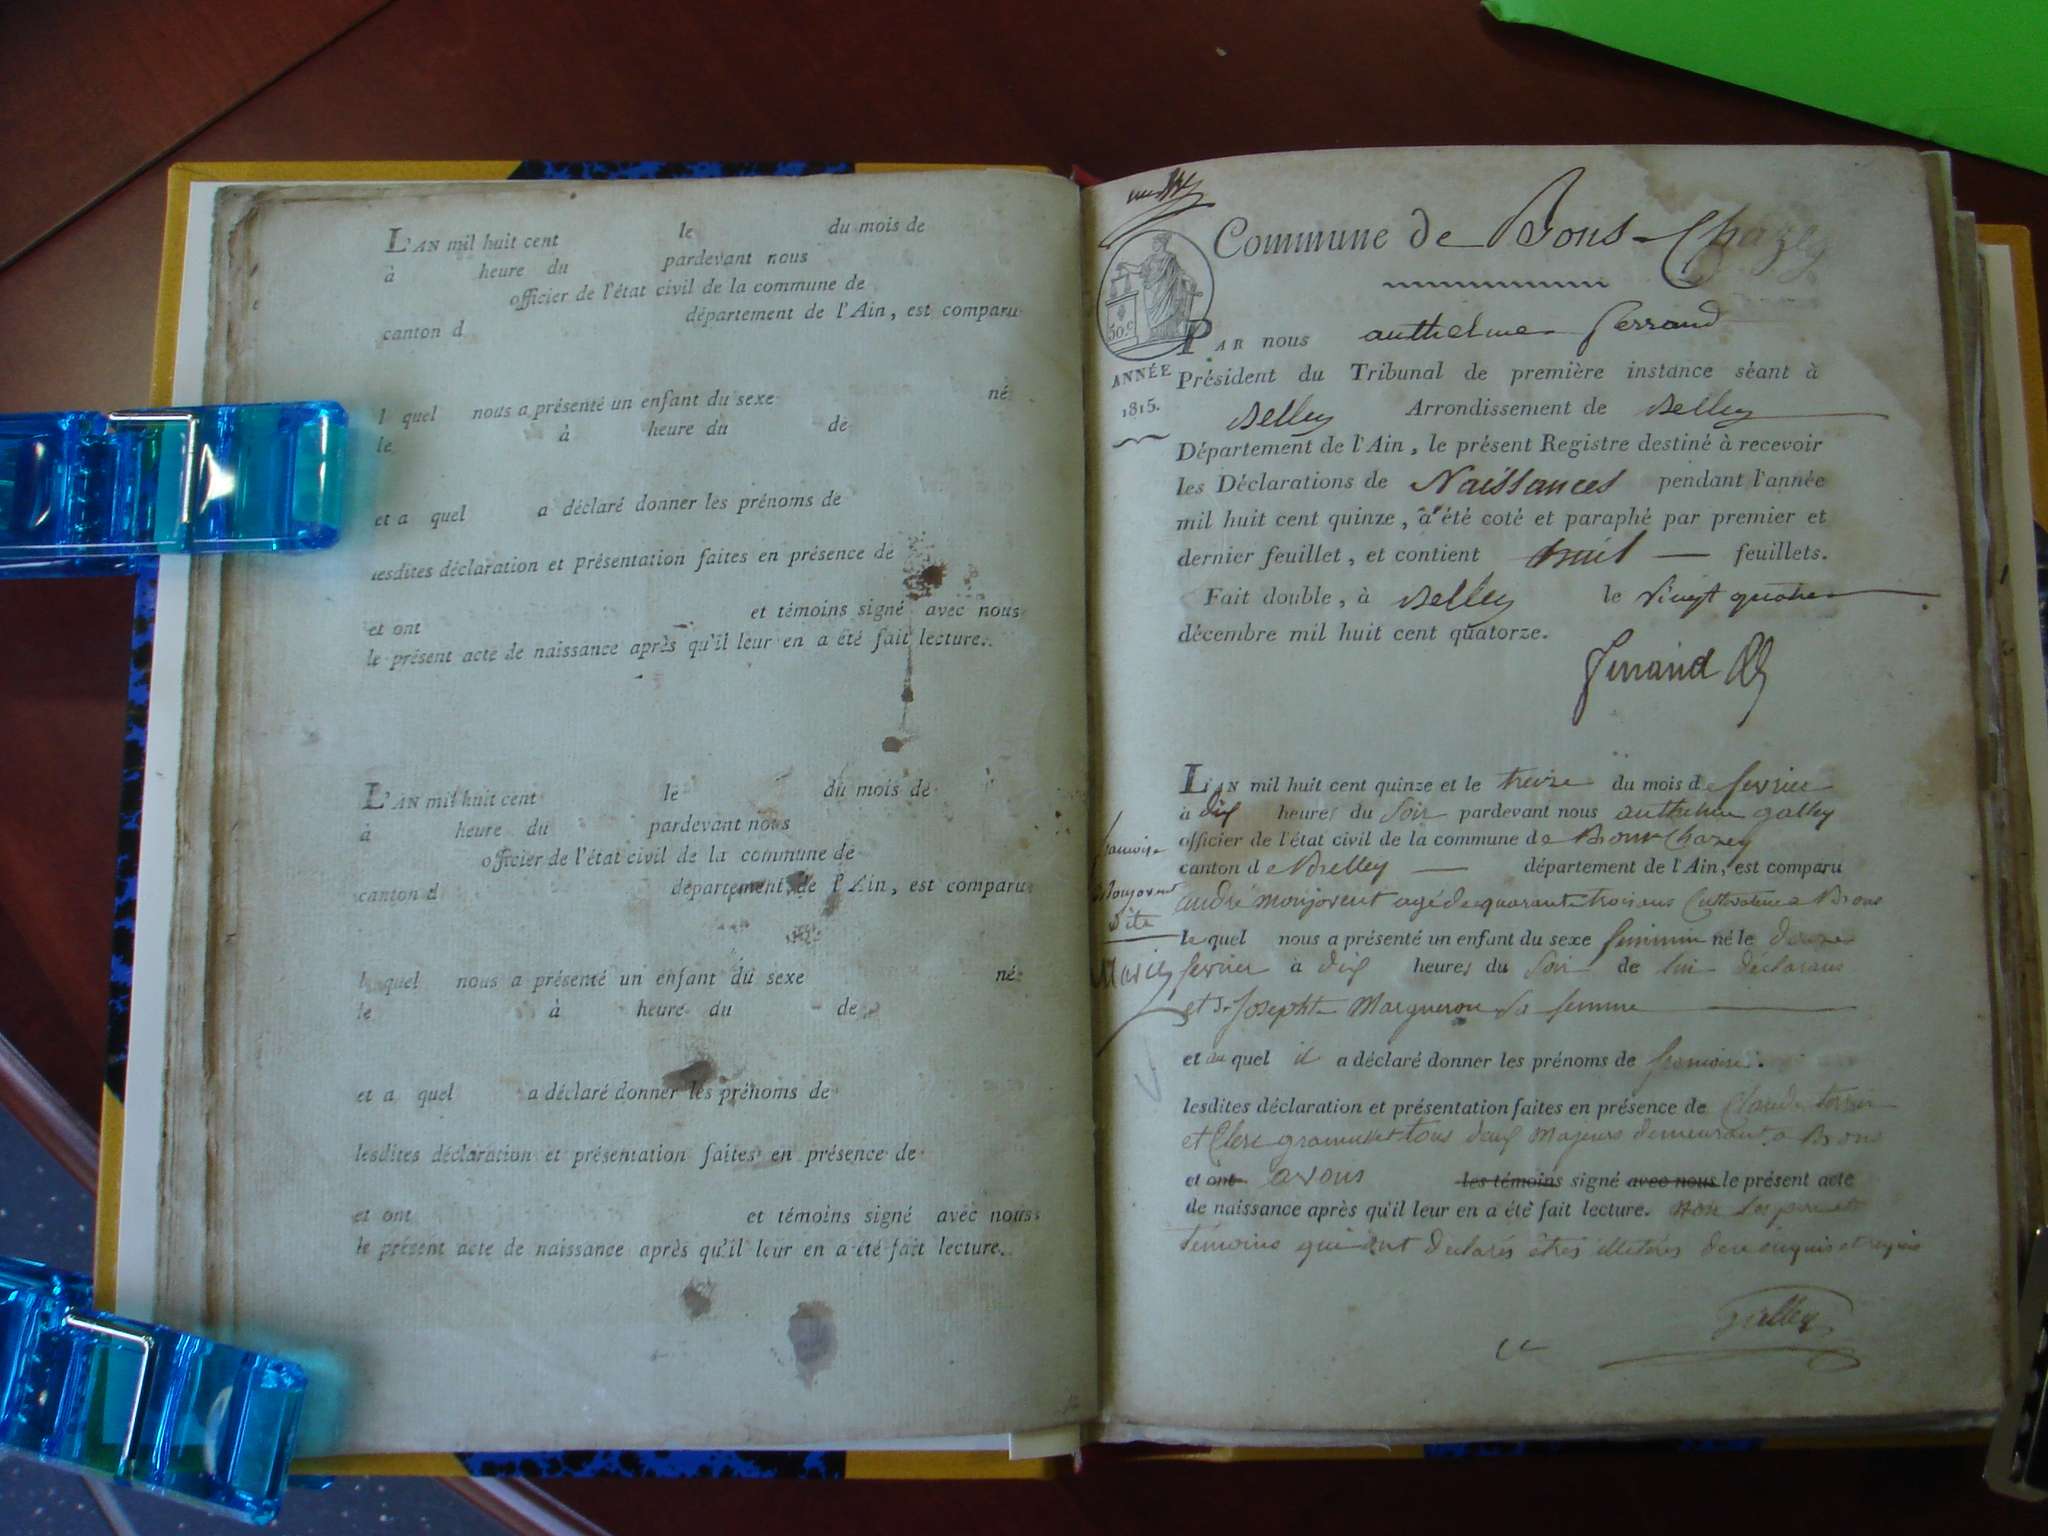 L'AN mil huit cent le du mois de
à heure du pardevant nous
officier de l'état civil de la commune de
canton d département de l'Ain, est comparu
l quel nous a présenté un enfant du sexe né
le à heure du de
et a quel a déclaré donner les prénoms de
lesdites déclaration et présentation faites en présence de
et ont et témoins signé avec nous
le présent acte de naissance après qu'il leur en a été fait lecture.
L'AN mil huit cent le du mois de
à heure du pardevant nous
officier de l'état civil de la commune de
canton d département de l'Ain, est comparu
l quel nous a présenté un enfant du sexe né
le à heure du de
et a quel a déclaré donner les prénoms de
lesdites déclaration et présentation faites en présence de
et ont et témoins signé avec nous
le présent acte de naissance après qu'il leur en a été fait lecture.
Commune de Bons-Chazey
50.c
PAR nous anthelme ferrand
ANNÉE
1815.
Président du Tribunal de première instance séant à
Belley Arrondissement de Belley
Département de l'Ain, le présent Registre destiné à recevoir
les Déclarations de Naissances pendant l'année
mil huit cent quinze, a été coté et paraphé par premier et
dernier feuillet, et contient huit feuillets.
Fait double, à Belley le vingt quatre
décembre mil huit cent quatorze.
ferrand
L'AN mil huit cent quinze et le treize du mois de fevrier
à dix heures du Soir pardevant nous anthelme galley
officier de l'état civil de la commune de Bons Chazey
canton de Belley département de l'Ain, est comparu
andré monjovent agé de quarante trois ans Cultivateur a Bons
le quel nous a présenté un enfant du sexe feminin né le douze
fevrier à dix heures du Soir de lui déclarant
et de Josephte Margueron sa femme
et au quel il a déclaré donner les prénoms de francoise.
lesdites déclaration et présentation faites en présence de Claude
et tous deux Majeurs demeurant a Bons
et ont avons les témoins signé avec nous le présent acte
de naissance après qu'il leur en a été fait lecture. non les
témoins qui ont declarés êtres illiterés de ce enquis et requis
galley
francoise
Monjovent
dite
Marie